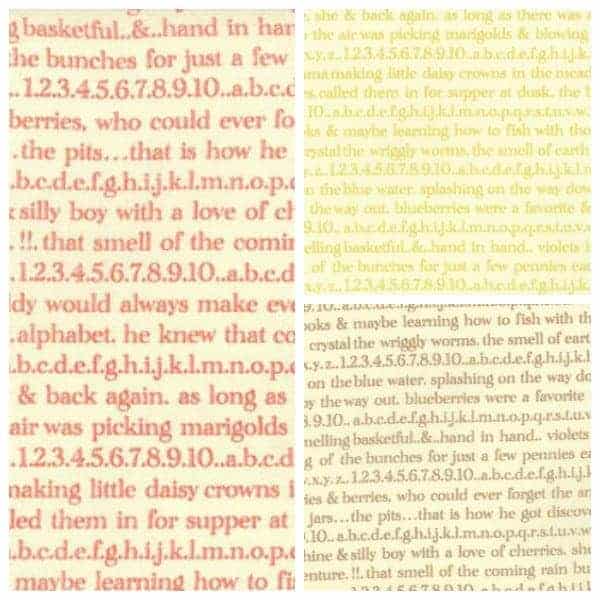 basketful..&..hand in hand
the bunches for just a few
..1.2.3.4.5.6.7.8.9.10..a.b.c.d
berries, who could ever fo
.the pits...that is how he
.b.c.d.e.f.g.h.i.j.k.l.m.n.o.p.
silly boy with a love of ch
. !!. that smell of the comin
.1.2.3.4.5.6.7.8.9.10..a.b.c.d
dy would always make eve
.alphabet. he knew that co
.b.c.d.e.f.g.h.i.j.k.l.m.n.o.p.
& back again. as long as
air was picking marigolds
.1.2.3.4.5.6.7.8.9.10..a.b.c.d
making little daisy crowns i
led them in for supper at
.b.c.d.e.f.g.h.i.j.k.l.m.n.o.p.
maybe learning how to fi
she & back again. as long as there was a
the air was picking marigolds & blowing
x.y.z..1.2.3.4.5.6.7.8.9.10..a.b.c.d.e.f.g.h.i.j.k.l
making little daisy crowns in the mead
called them in for supper at dusk. the b
10..a.b.c.d.e.f.g.h.i.j.k.l.m.n.o.p.q.r.s.t.u.v.w.
ks & maybe learning how to fish with tho
crystal the wriggly worms. the smell of earth
1.2.3.4.5.6.7.8.9.10..a.b.c.d.e.f.g.h.i.j.k.l.m
on the blue water. splashing on the way dow
the way out. blueberries were a favorite &
9.10.. a.b.c.d.e.f.g.h.i.j.k.l.m.n.o.p.q.r.s.t.u.v.w
elling basketful..&..hand in hand.. violets i
of the bunches for just a few pennies ea
1.2.3.4.5.6.7.8.9.10..a.b.c.d.e.f.g.h.i.j.k.l.m
9.10..a.b.c.d.e.f.g.h.i.j.k.l.m.n.o.p.q.r.s.t.u.v.
oks & maybe learning how to fish with th
crystal the wriggly worms. the smell of eart
x.y.z..1.2.3.4.5.6.7.8.9.10..a.b.c.d.e.f.g.h.i.j.k.l
on the blue water. splashing on the way do
the way out. blueberries were a favorite
9.10.. a.b.c.d.e.f.g.h.i.j.k.l.m.n.o.p.q.r.s.t.u.v
melling basketful..&..hand in hand.. violets
of the bunches for just a few pennies ea
x.y.z..1.2.3.4.5.6.7.8.9.10..a.b.c.d.e.f.g.h.i.j.k.l
ies & berries, who could ever forget the
jars...the pits...that is how he got discove
10..a.b.c.d.e.f.g.h.i.j.k.l.m.n.o.p.q.r.s.t.u.v.w
hine & silly boy with a love of cherries. she
enture. !!. that smell of the coming rain bu
1.2.3.4.5.6.7.8.9.10..a.b.c.d.e.f.g.h.i.j.k.l